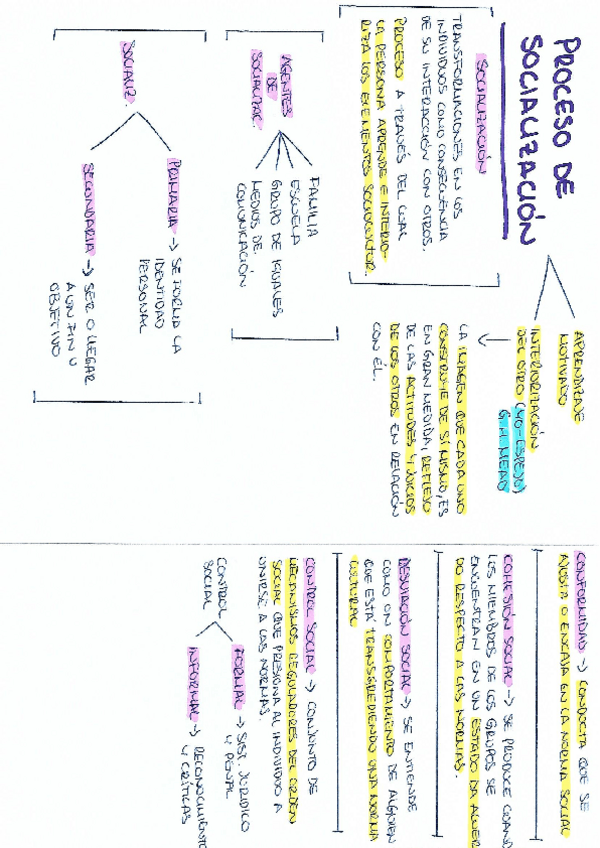 PROCESO DE
SOCIALIZACIÓN
APRENDIZAJE
MOTIVADO
INTERIORIZACIÓN
DEL OTRO (YO-ESPEJO)
G.H. MEAD
LA IMAGEN QUE CADA UNO
CONSTRUYE DE SÍ MISMO, ES
EN GRAN MEDIDA, REFLEJO
DE LAS ACTITUDES Y JUICIOS
DE LOS OTROS EN RELACIÓN
CON ÉL.
SOCIALIZACIÓN
TRANSFORMACIONES EN LOS
INDIVIDUOS COMO CONSECUENCIA
DE SU INTERACCIÓN CON OTROS.
PROCESO A TRAVÉS DEL CUAL
LA PERSONA APRENDE E INTERIO-
RIZA LOS ELEMENTOS SOCIOCULTUR.
AGENTES
DE
SOCIALIZAC.
FAMILIA
ESCUELA
GRUPO DE IGUALES
MEDIOS DE
COMUNICACIÓN
SOCIALIZ.
PRIMARIA → SE FORMA LA
IDENTIDAD
PERSONAL
SECUNDARIA → SER O LLEGAR
A UN FIN U
OBJETIVO
CONFORMIDAD → CONDUCTA QUE SE
AJUSTA O ENCAJA EN LA NORMA SOCIAL
COHESIÓN SOCIAL → SE PRODUCE CUAND
LOS MIEMBROS DE LOS GRUPOS SE
ENCUENTRAN EN UN ESTADO DA ACUER
DO RESPECTO A LAS NORMAS.
DESVIACIÓN SOCIAL → SE ENTIENDE
COMO UN COMPORTAMIENTO DE ALGUIEN
QUE ESTÁ TRANSGREDIENDO UNA NORMA
CULTURAL
CONTROL SOCIAL → CONJUNTO DE
MECANISMOS REGULADORES DEL ORDEN
SOCIAL QUE PRESIONA AL INDIVIDUO A
UNIRSE A LAS NORMAS.
CONTROL
SOCIAL
FORMAL → SIST. JURÍDICO
Y PENAL
INFORMAL → RECONOCIMIENTO
Y CRÍTICAS